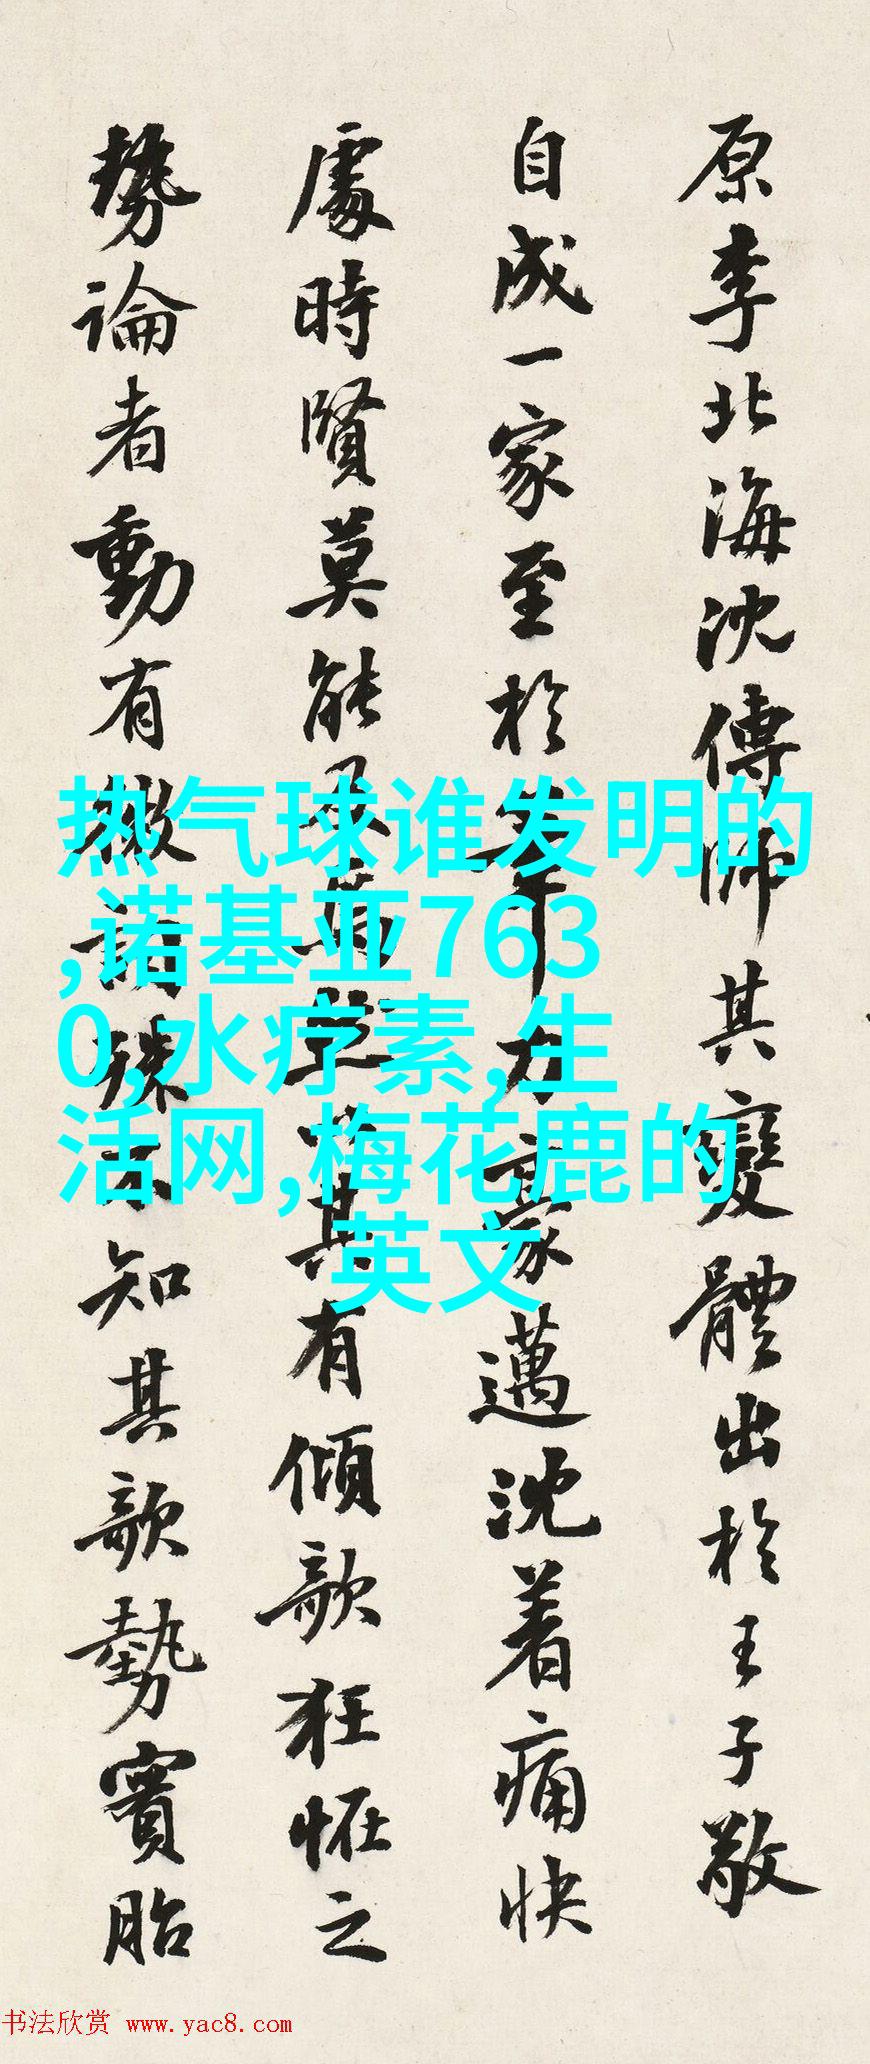 原李北海沈傳師其變體出於王子敬
自成一家至於筆力豪邁沈着痛快
處時賢莫能其有傾歌狂怪之
勢論者動有微詞殊不知其歌勢實胎
热气球谁发明的
,诺基亚763
0,水疗素,生
活网,梅花鹿的
英文
书法欣赏 www.yac8.com